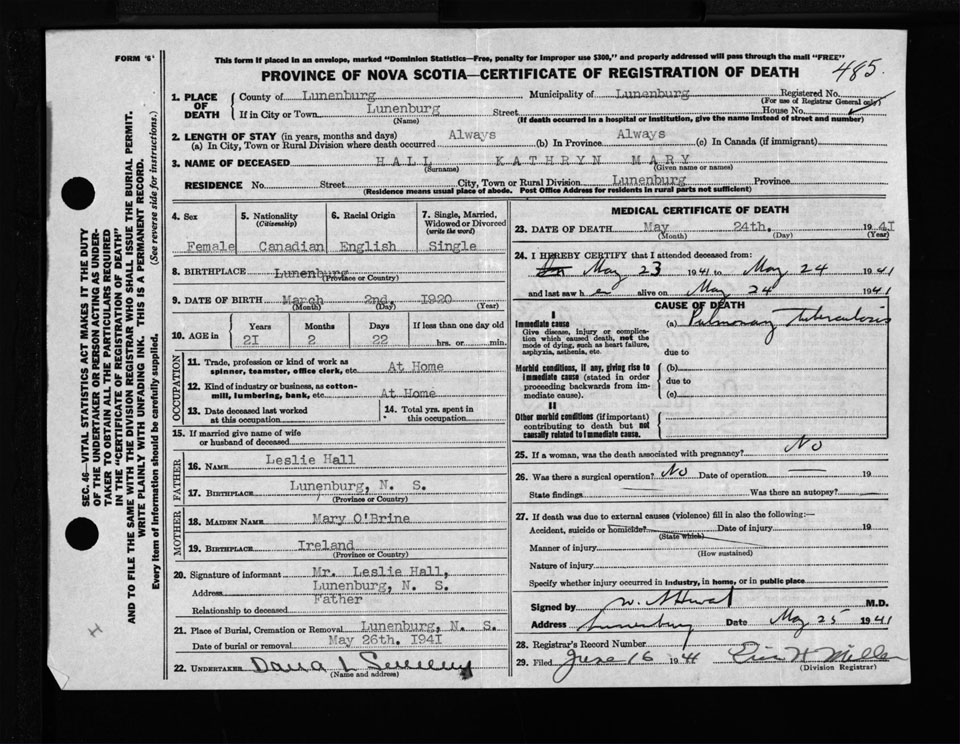 FORM '6'
This form if placed in an envelope, marked "Dominion Statistics—Free, penalty for improper use $300," and properly addressed will pass through the mail "FREE"
485
PROVINCE OF NOVA SCOTIA—CERTIFICATE OF REGISTRATION OF DEATH
SEC. 46—VITAL STATISTICS ACT MAKES IT THE DUTY
OF THE UNDERTAKER OR PERSON ACTING AS UNDER-
TAKER TO OBTAIN ALL THE PARTICULARS REQUIRED
IN THE "CERTIFICATE OF REGISTRATION OF DEATH"
AND TO FILE THE SAME WITH THE DIVISION REGISTRAR WHO SHALL ISSUE THE BURIAL PERMIT.
WRITE PLAINLY WITH UNFADING INK. THIS IS A PERMANENT RECORD.
Every item of information should be carefully supplied. (See reverse side for instructions.)
H
1. PLACE OF DEATH
County of Lunenburg Municipality of Lunenburg Registered No.
(For use of Registrar General only)
If in City or Town Lunenburg Street House No.
(Name) (If death occurred in a hospital or institution, give the name instead of street and number)
2. LENGTH OF STAY (in years, months and days)
(a) In City, Town or Rural Division where death occurred Always (b) In Province Always (c) In Canada (if immigrant)
3. NAME OF DECEASED HALL KATHRYN MARY
(Surname) (Given name or names)
RESIDENCE No. Street City, Town or Rural Division Lunenburg Province
(Residence means usual place of abode. Post Office Address for residents in rural parts not sufficient)
4. Sex 5. Nationality (Citizenship) 6. Racial Origin 7. Single, Married, Widowed or Divorced (write the word)
Female Canadian English Single
8. BIRTHPLACE Lunenburg
(Province or Country)
9. DATE OF BIRTH March 2nd, 1920
(Month) (Day) (Year)
10. AGE in Years Months Days If less than one day old
21 2 22 hrs. or min.
OCCUPATION
11. Trade, profession or kind of work as
spinner, teamster, office clerk, etc. At Home
12. Kind of industry or business, as cotton-
mill, lumbering, bank, etc. At Home
13. Date deceased last worked
at this occupation
14. Total yrs. spent in
this occupation
15. If married give name of wife
or husband of deceased
FATHER
16. NAME Leslie Hall
17. BIRTHPLACE Lunenburg, N. S.
(Province or Country)
MOTHER
18. MAIDEN NAME Mary O'Brine
19. BIRTHPLACE Ireland
(Province or Country)
20. Signature of informant Mr. Leslie Hall,
Address Lunenburg, N. S.
Relationship to deceased Father
21. Place of Burial, Cremation or Removal Lunenburg, N. S.
Date of burial or removal May 26th. 1941
22. UNDERTAKER
(Name and address)
MEDICAL CERTIFICATE OF DEATH
23. DATE OF DEATH May 24th, 1941
(Month) (Day) (Year)
24. I HEREBY CERTIFY that I attended deceased from:
May 23 1941 to May 24 1941
and last saw her alive on May 24 1941
CAUSE OF DEATH
I
Immediate cause (a) Pulmonary Tuberculosis
Give disease, injury or complica-
tion which caused death, not the
mode of dying, such as heart failure,
asphyxia, asthenia, etc.
due to
Morbid conditions, if any, giving rise to
immediate cause (stated in order
proceeding backwards from im-
mediate cause).
(b)
due to
(c)
II
Other morbid conditions (if important)
contributing to death but not
causally related to immediate cause.
25. If a woman, was the death associated with pregnancy? No
26. Was there a surgical operation? No Date of operation 19
State findings Was there an autopsy?
27. If death was due to external causes (violence) fill in also the following:—
Accident, suicide or homicide? Date of injury 19
(State which)
Manner of injury
(How sustained)
Nature of injury
Specify whether injury occurred in industry, in home, or in public place
Signed by M.D.
Address Lunenburg Date May 25 1941
28. Registrar's Record Number
29. Filed June 16 1941
(Division Registrar)